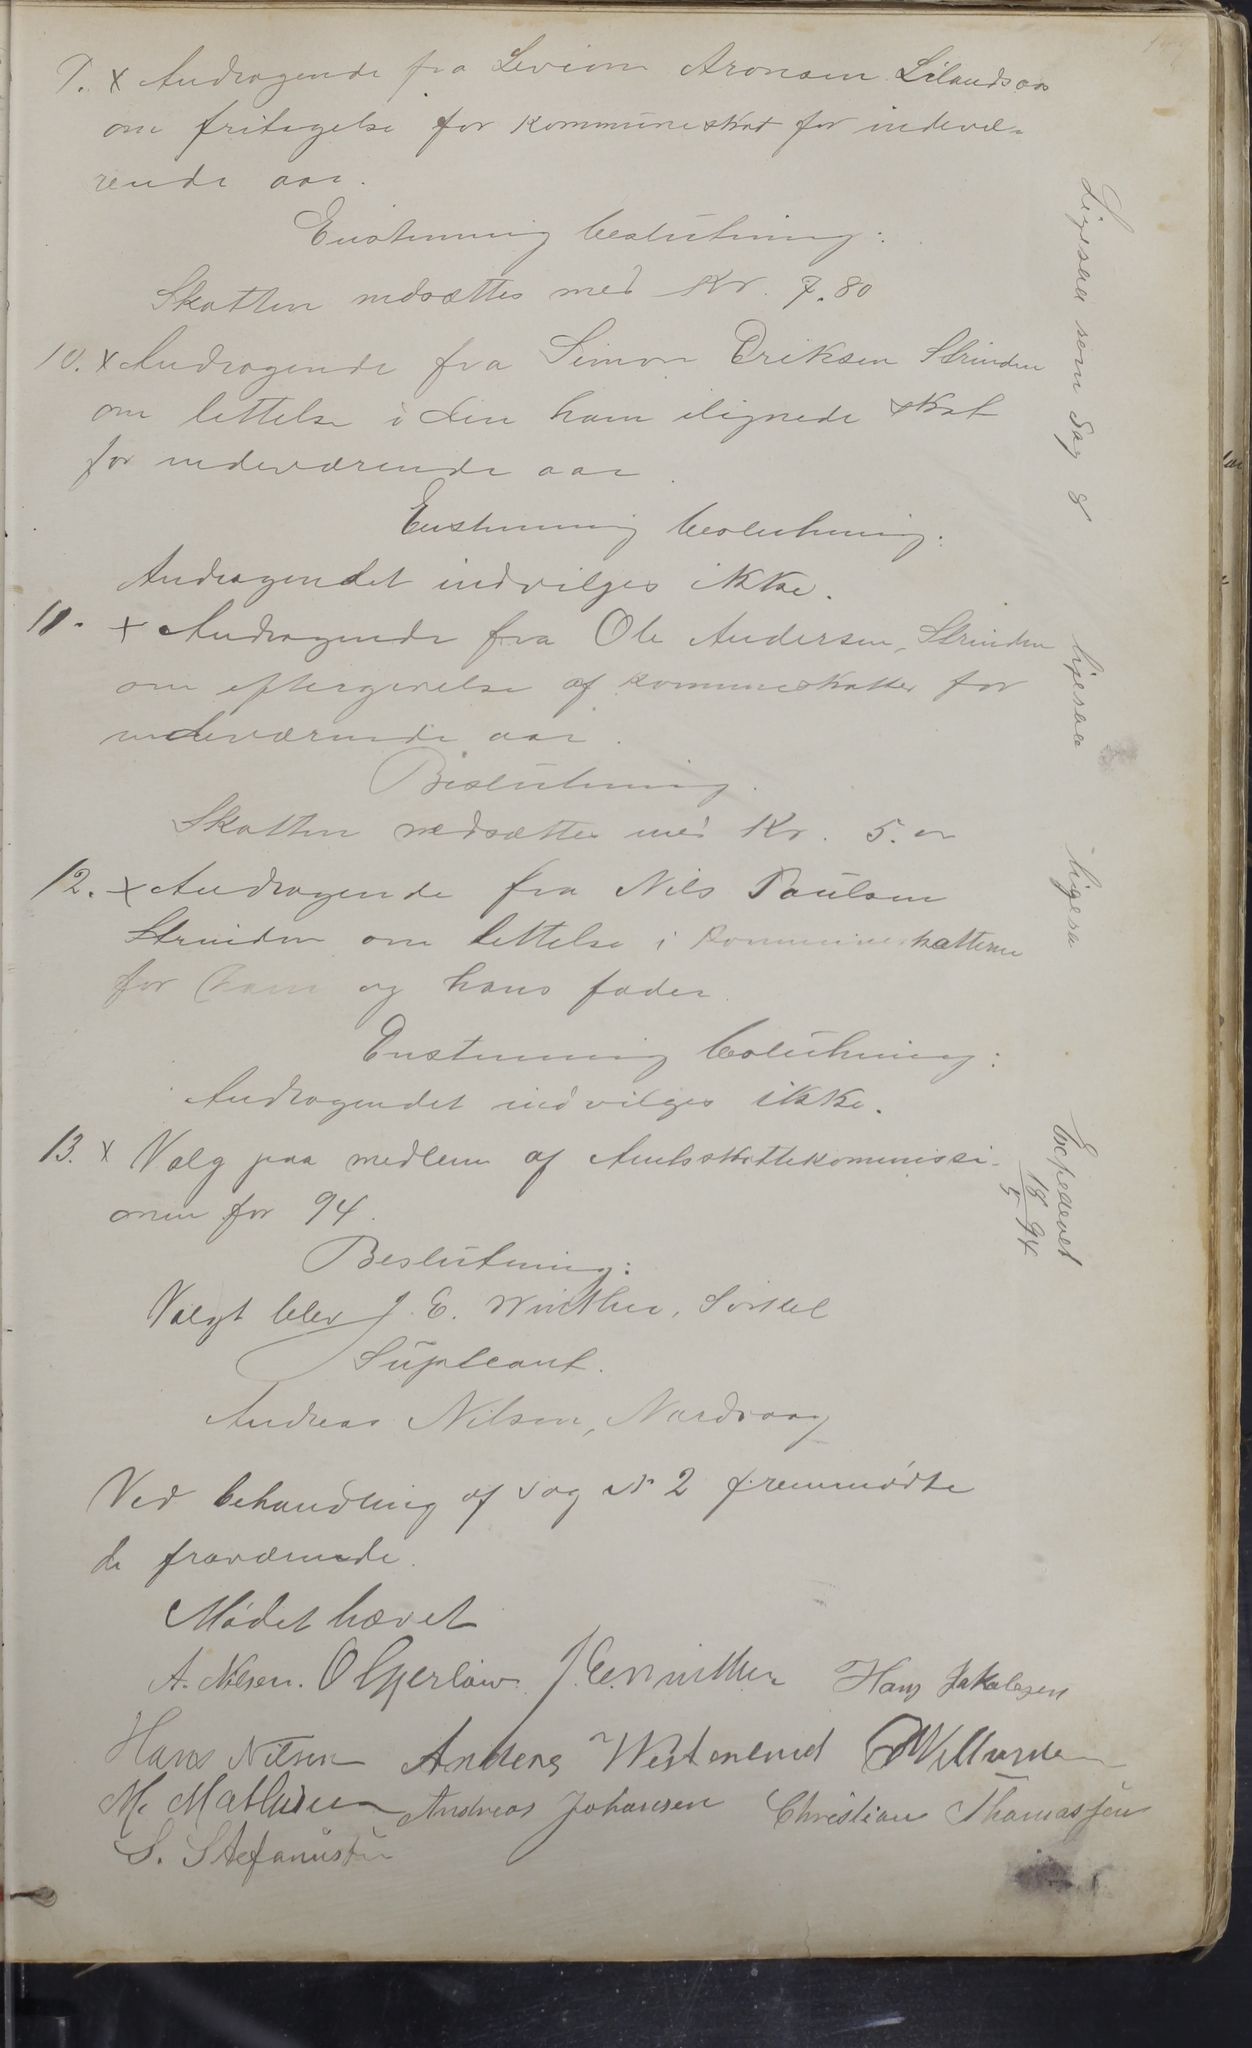 9. x Andragende fra Leviem Aronsen Lilandsaas
om fritagelse for kommuneskat for indevæ-
rende aar.
Enstemmig beslutning:
Skatten nedsættes med Kr. 7.80
10. x Andragende fra Simon Eriksen Strinden
om lettelse i den ham ilignede skat
for indeværende aar.
Enstemmig beslutning:
Andragendet indvilges ikke.
11. x Andragende fra Ole Andersen, Strinden
om eftergivelse af kommuneskatter for
indeværende aar.
Beslutning.
Skatten nedsættes med Kr. 5.00
12. x Andragende fra Nils Paulsen
Strinden om lettelse i kommuneskatterne
for ham og hans fader.
Enstemmig beslutning:
Andragendet indvilges ikke.
13. x Valg paa medlem af Amtsskattekommissi-
onen for 94.
Beslutning:
Valgt blev J. E. Winther, Sortlel
Supleant.
Andreas Nilsen, Nordvaag
Ved behandling af sag N 2 fremmødte
de fraværende.
Mødet hævet
A. Nilsen. O Gjerløw. J. E. Winther Hans Jakobsen
Hans Nilsen Anders Westenlund
M. Mathisen Andreas Johansen Christian Thomassen
S. Stefanusen
Ligesaa som Sag 8
ligesaa
ligesa
Expederet
18/5 94